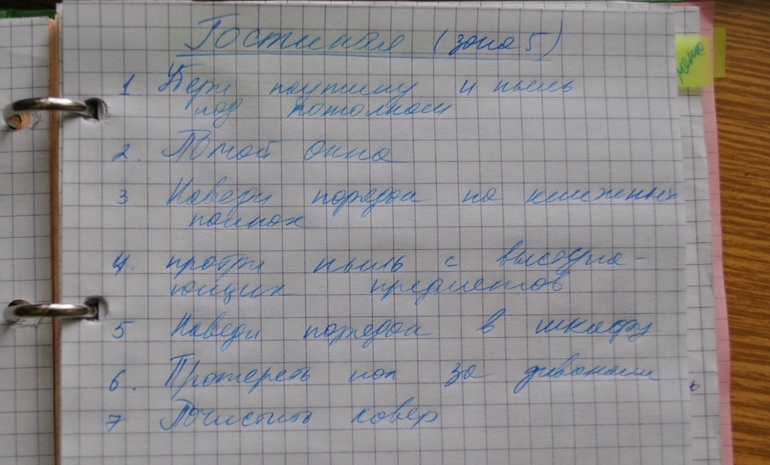 Гостиная (зона 5)
1 Убери паутину и пыль
под потолком
2. Помой окна
3 Наведи порядок на книжных
полках
4. протри пыль с выступа-
ющих предметов
5 Наведи порядок в шкафу
6. Протереть пол за диванами
7 Почистить ковер